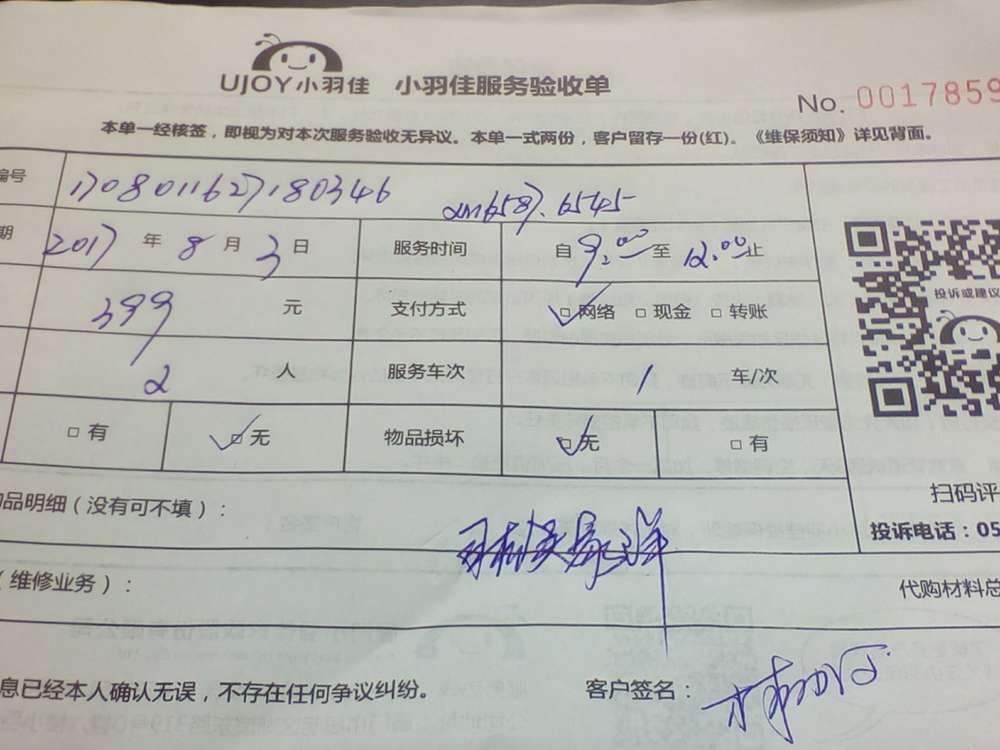 UJOY小羽佳 小羽佳服务验收单
No. 0017859
本单一经核签，即视为对本次服务验收无异议。本单一式两份，客户留存一份(红)。《维保须知》详见背面。
编号 17080116271180346
期 2017 年 8 月 3 日 服务时间 自 9:00 至 12:00 止
投诉或建议
399 元 支付方式 ☑网络 □现金 □转账
2 人 服务车次 1 车/次
□有 ☑无 物品损坏 ☑无 □有
扫码评
品明细(没有可不填)：
投诉电话：05
(维修业务)：
代购材料总
息已经本人确认无误，不存在任何争议纠纷。 客户签名：